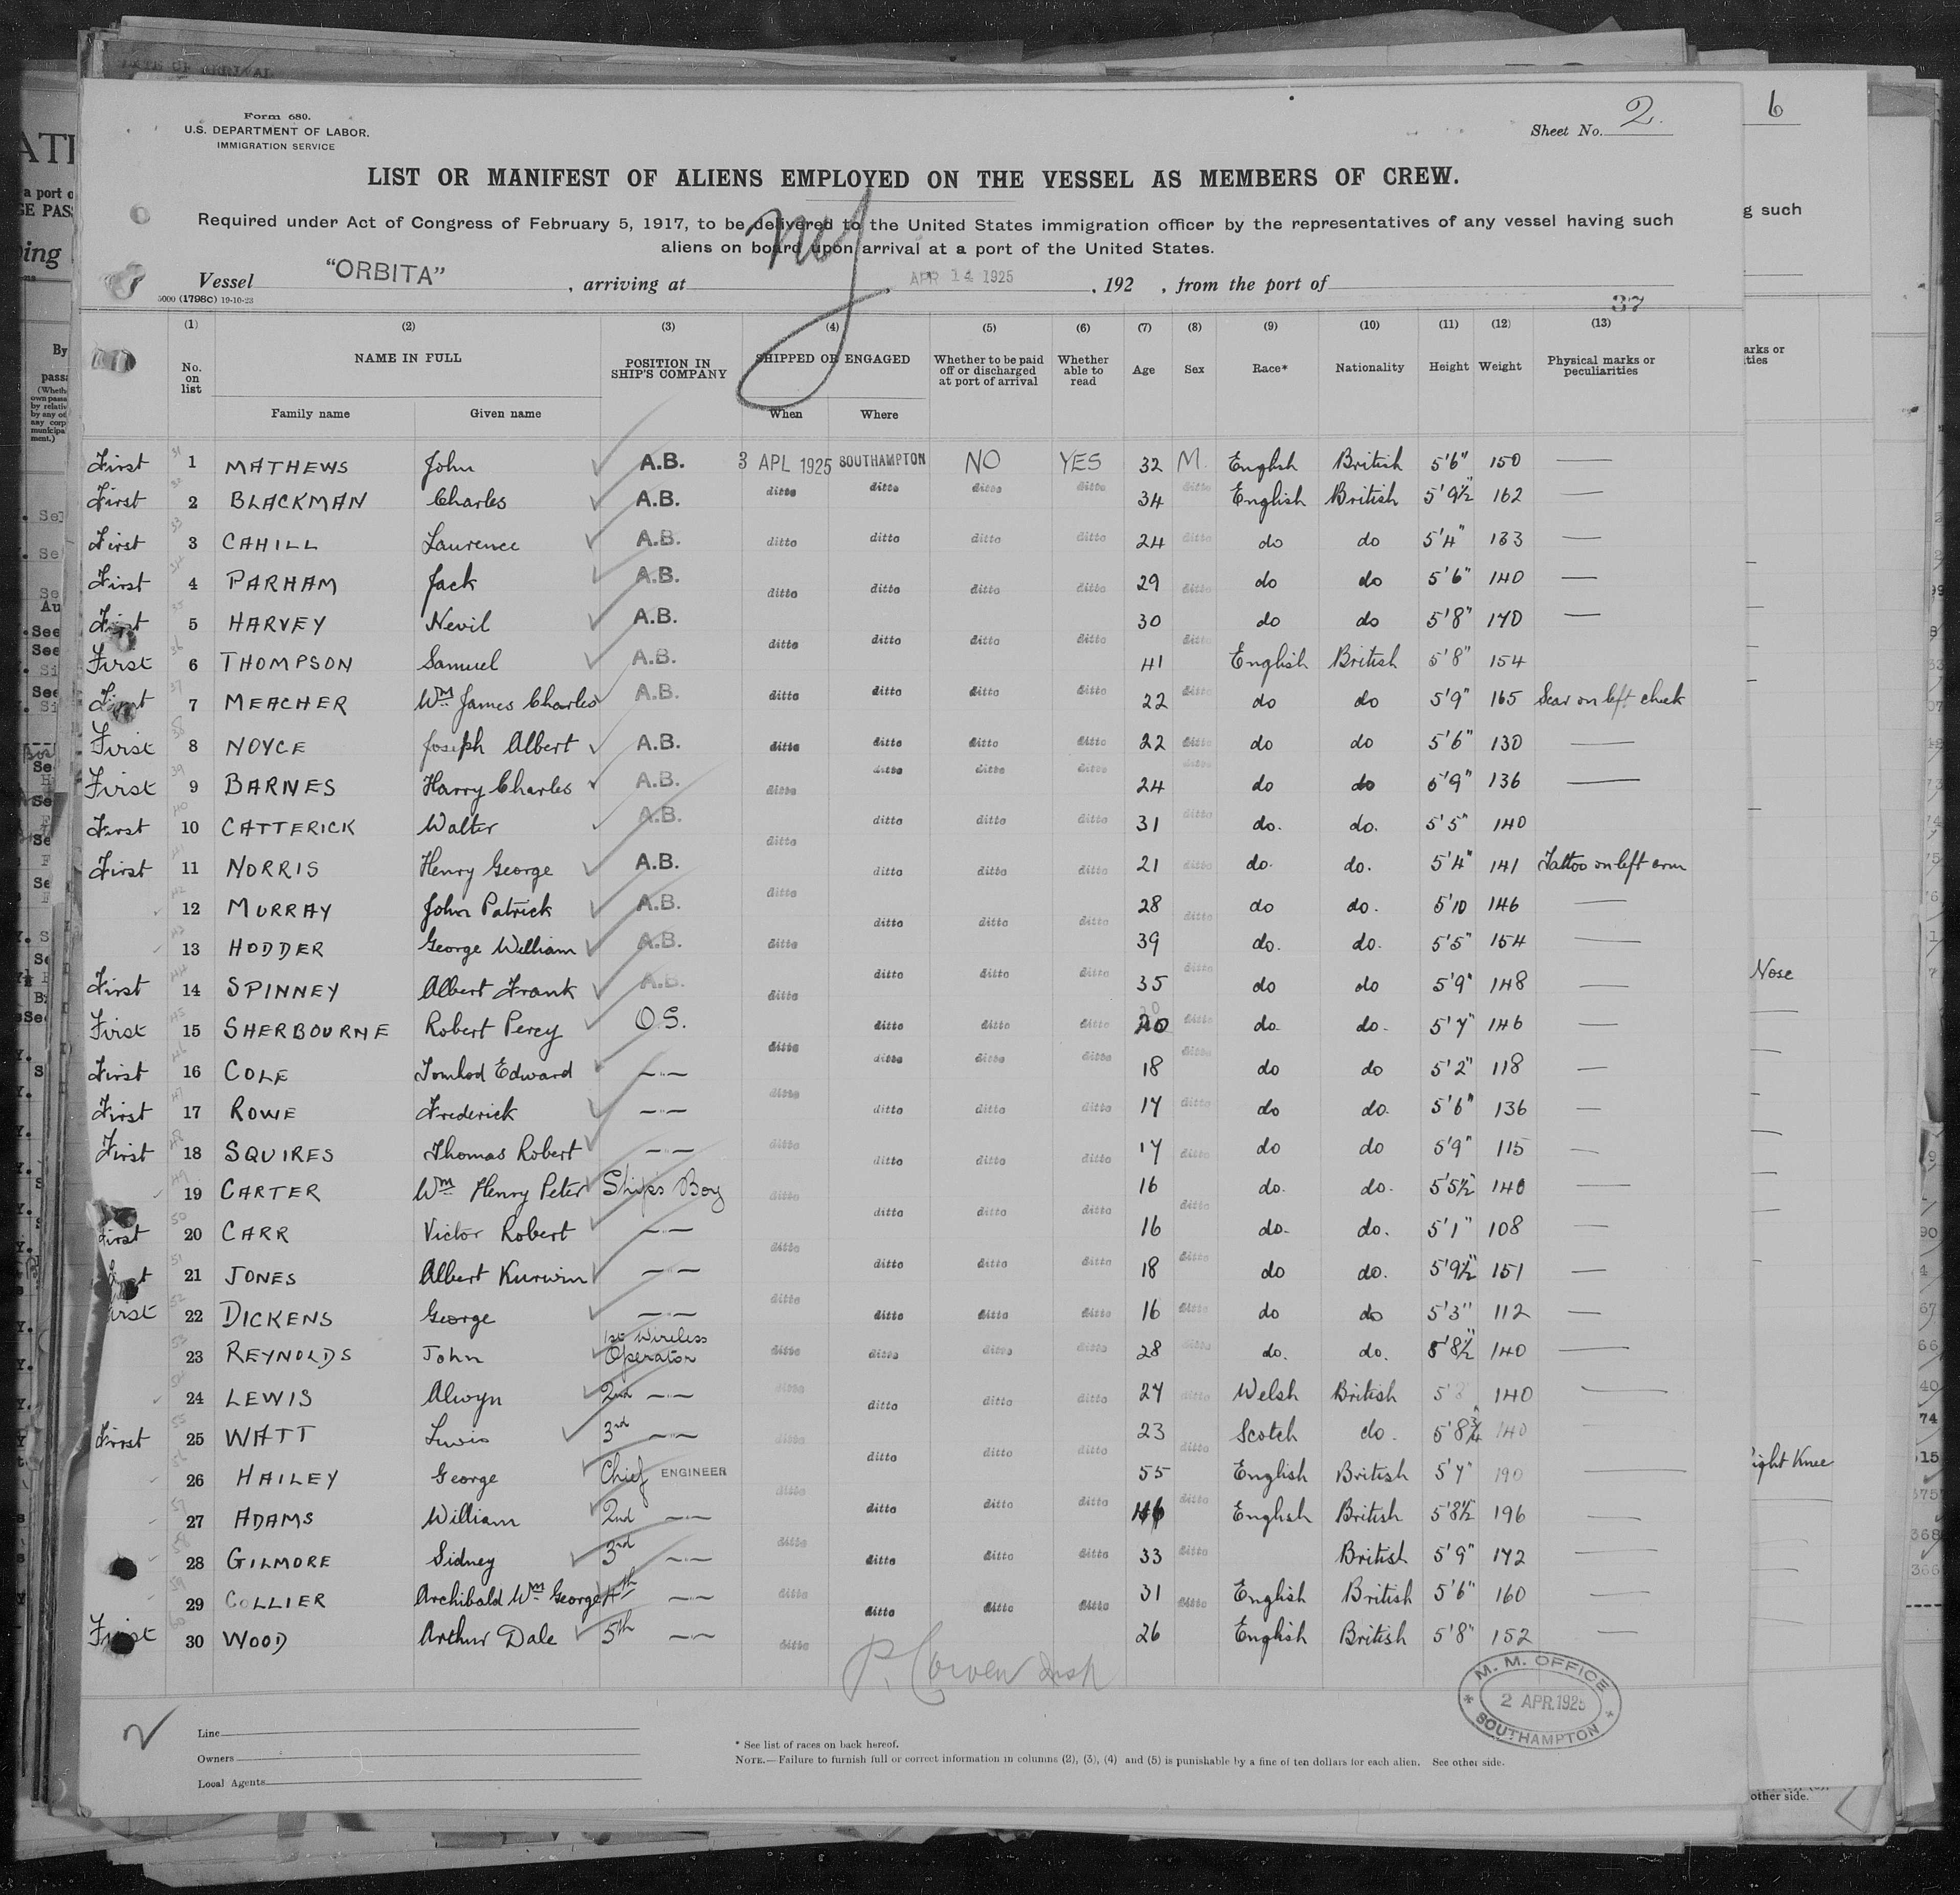 Form 680.
U.S. DEPARTMENT OF LABOR.
IMMIGRATION SERVICE
Sheet No. 2.
6
LIST OR MANIFEST OF ALIENS EMPLOYED ON THE VESSEL AS MEMBERS OF CREW.
Required under Act of Congress of February 5, 1917, to be delivered to the United States immigration officer by the representatives of any vessel having such
aliens on board upon arrival at a port of the United States.
ny
Vessel "ORBITA", arriving at APR 14 1925, 192 , from the port of
5000 (1798C) 19-10-23
37
(1) (2) (3) (4) (5) (6) (7) (8) (9) (10) (11) (12) (13)
No. on list NAME IN FULL POSITION IN SHIP'S COMPANY SHIPPED OR ENGAGED Whether to be paid off or discharged at port of arrival Whether able to read Age Sex Race* Nationality Height Weight Physical marks or peculiarities
Family name Given name When Where
First 1 MATHEWS John A.B. 3 APL 1925 SOUTHAMPTON NO YES 32 M. English British 5'6" 150 —
First 2 BLACKMAN Charles A.B. ditto ditto ditto ditto 34 ditto English British 5'9½" 162 —
First 3 CAHILL Laurence A.B. ditto ditto ditto ditto 24 ditto do do 5'4" 133 —
First 4 PARHAM Jack A.B. ditto ditto ditto ditto 29 ditto do do 5'6" 140 —
First 5 HARVEY Nevil A.B. ditto ditto ditto ditto 30 ditto do do 5'8" 170 —
First 6 THOMPSON Samuel A.B. ditto ditto ditto ditto 41 ditto English British 5'8" 154
First 7 MEACHER Wm James Charles A.B. ditto ditto ditto ditto 22 ditto do do 5'9" 165 Scar on left cheek
First 8 NOYCE Joseph Albert A.B. ditto ditto ditto ditto 22 ditto do do 5'6" 130 —
First 9 BARNES Harry Charles A.B. ditto ditto ditto ditto 24 ditto do do 5'9" 136 —
First 10 CATTERICK Walter A.B. ditto ditto ditto ditto 31 ditto do. do. 5'5" 140
First 11 NORRIS Henry George A.B. ditto ditto ditto ditto 21 ditto do. do. 5'4" 141 Tattoo on left arm
12 MURRAY John Patrick A.B. ditto ditto ditto ditto 28 ditto do do. 5'10 146 —
13 HODDER George William A.B. ditto ditto ditto ditto 39 ditto do. do. 5'5" 154 —
First 14 SPINNEY Albert Frank A.B. ditto ditto ditto ditto 35 ditto do do 5'9" 148 —
First 15 SHERBOURNE Robert Percy O.S. ditto ditto ditto ditto 20 ditto do. do. 5'7" 146 —
First 16 COLE Edward —"— ditto ditto ditto ditto 18 ditto do do 5'2" 118 —
First 17 ROWE Frederick —"— ditto ditto ditto ditto 17 ditto do do. 5'6" 136 —
First 18 SQUIRES Thomas Robert —"— ditto ditto ditto ditto 17 ditto do do 5'9" 115 —
19 CARTER Wm Henry Peter Ships Boy ditto ditto ditto ditto 16 ditto do. do. 5'5½ 140 —
First 20 CARR Victor Robert —"— ditto ditto ditto ditto 16 ditto do. do. 5'1" 108 —
First 21 JONES Albert —"— ditto ditto ditto ditto 18 ditto do do. 5'9½" 151 —
First 22 DICKENS George —"— ditto ditto ditto ditto 16 ditto do do 5'3" 112 —
23 REYNOLDS John 1st Wireless Operator ditto ditto ditto ditto 28 ditto do. do. 5'8½" 140 —
24 LEWIS Alwyn 2nd —"— ditto ditto ditto ditto 27 ditto Welsh British 140 —
First 25 WATT Lewis 3rd —"— ditto ditto ditto ditto 23 ditto Scotch do. 5'8¾ 140
26 HAILEY George Chief ENGINEER ditto ditto ditto ditto 55 ditto English British 5'7" 190 —
27 ADAMS William 2nd —"— ditto ditto ditto ditto 46 ditto English British 5'8½ 196 —
28 GILMORE Sidney 3rd —"— ditto ditto ditto ditto 33 ditto British 5'9" 172 —
29 COLLIER Archibald Wm George 4th —"— ditto ditto ditto ditto 31 ditto English British 5'6" 160 —
First 30 WOOD Arthur Dale 5th —"— ditto 26 English British 5'8" 152 —
Nose
Right Knee
M. M. OFFICE
2 APR. 1925
SOUTHAMPTON
Line
Owners
Local Agents
* See list of races on back hereof.
NOTE.—Failure to furnish full or correct information in columns (2), (3), (4) and (5) is punishable by a fine of ten dollars for each alien. See other side.
other side.